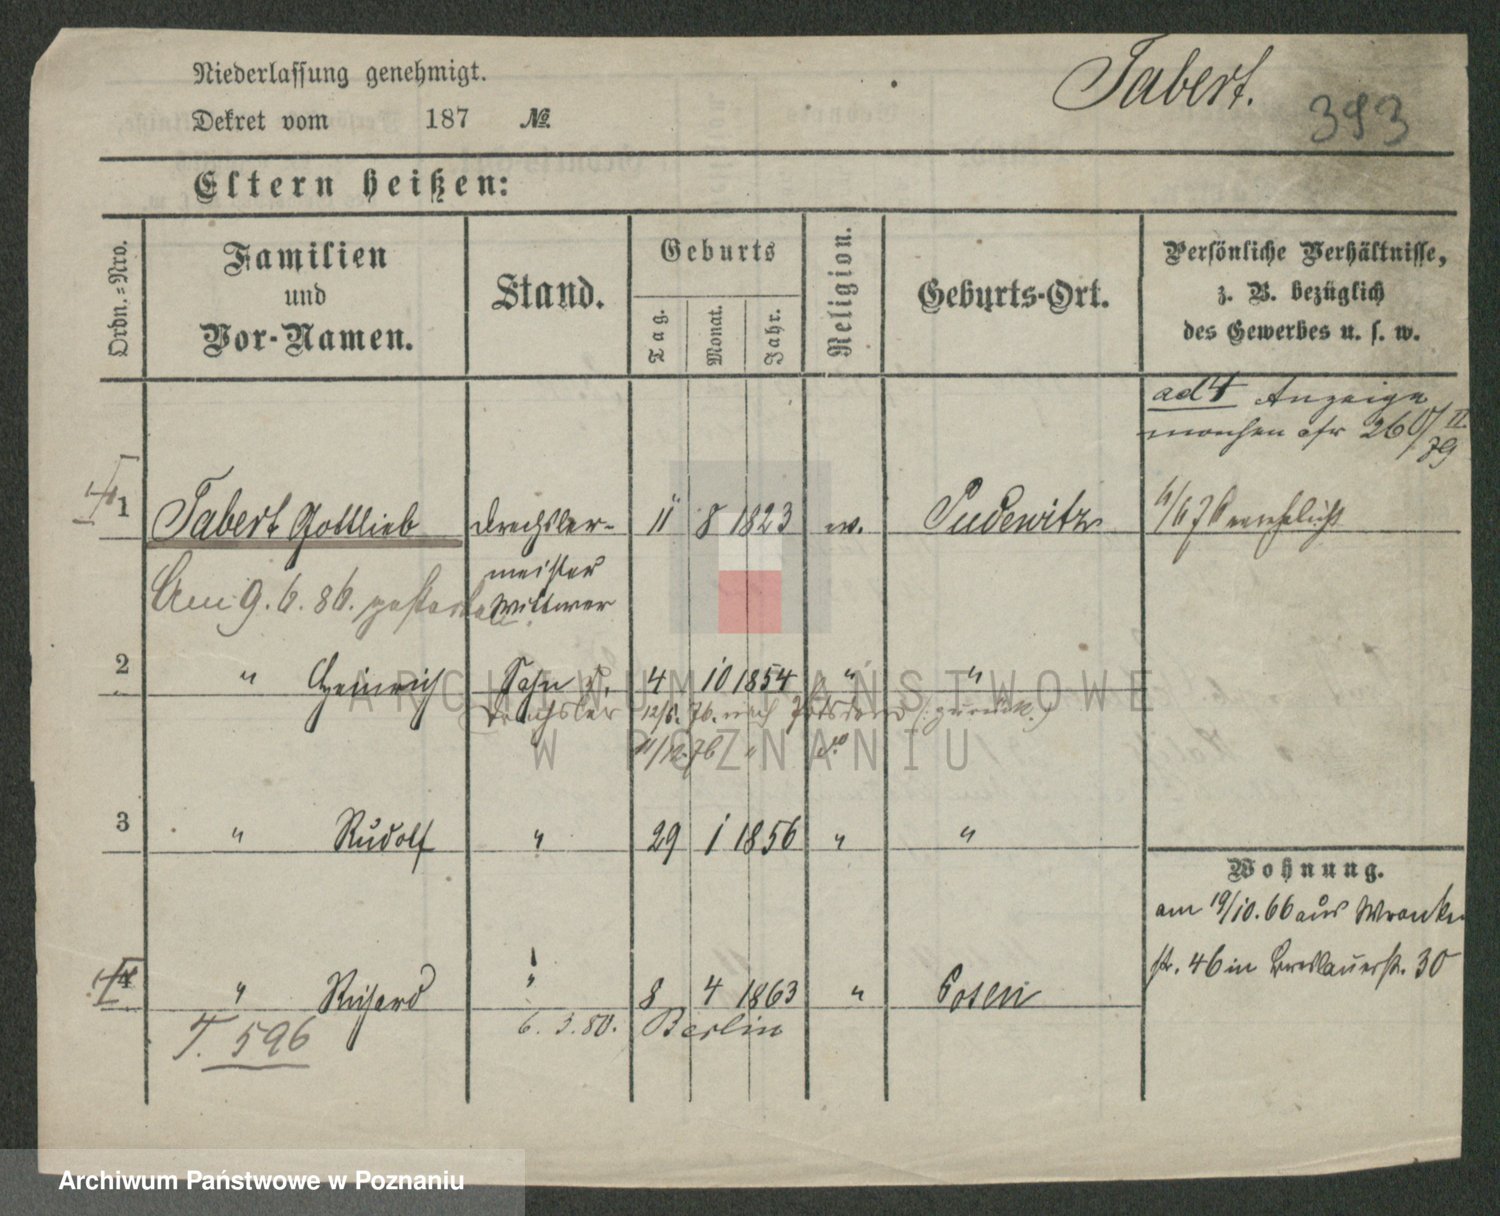 Niederlassung genehmigt.
Tabert.
393
Dekret vom 187 №.
Eltern heißen:
Ordn.=Nro.
Familien
und
Vor-Namen.
Stand.
Geburts
Tag.
Monat.
Jahr.
Religion.
Geburts-Ort.
Persönliche Verhältnisse,
z. B. bezüglich
des Gewerbes u. s. w.
ad 4 Anzeige
1 Tabert Gottlieb Drechsler- 11 8 1823 w. Pudewitz
meister
Wittwer
Am 9.6.86. gestorben.
2 " Heinrich Sohn 4 10 1854 " "
Drechsler 12/6. 76. nach Potsdam
11/12. 76 " do
3 " Rudolf " 29 1 1856 " "
4 " Richard " 8 4 1863 " Posen
6. 3. 80. Berlin
T. 596
Wohnung.
am 19/10. 66 aus Wronker
str. 46 in Breslauerstr. 30
ARCHIWUM PAŃSTWOWE
W POZNANIU
Archiwum Państwowe w Poznaniu